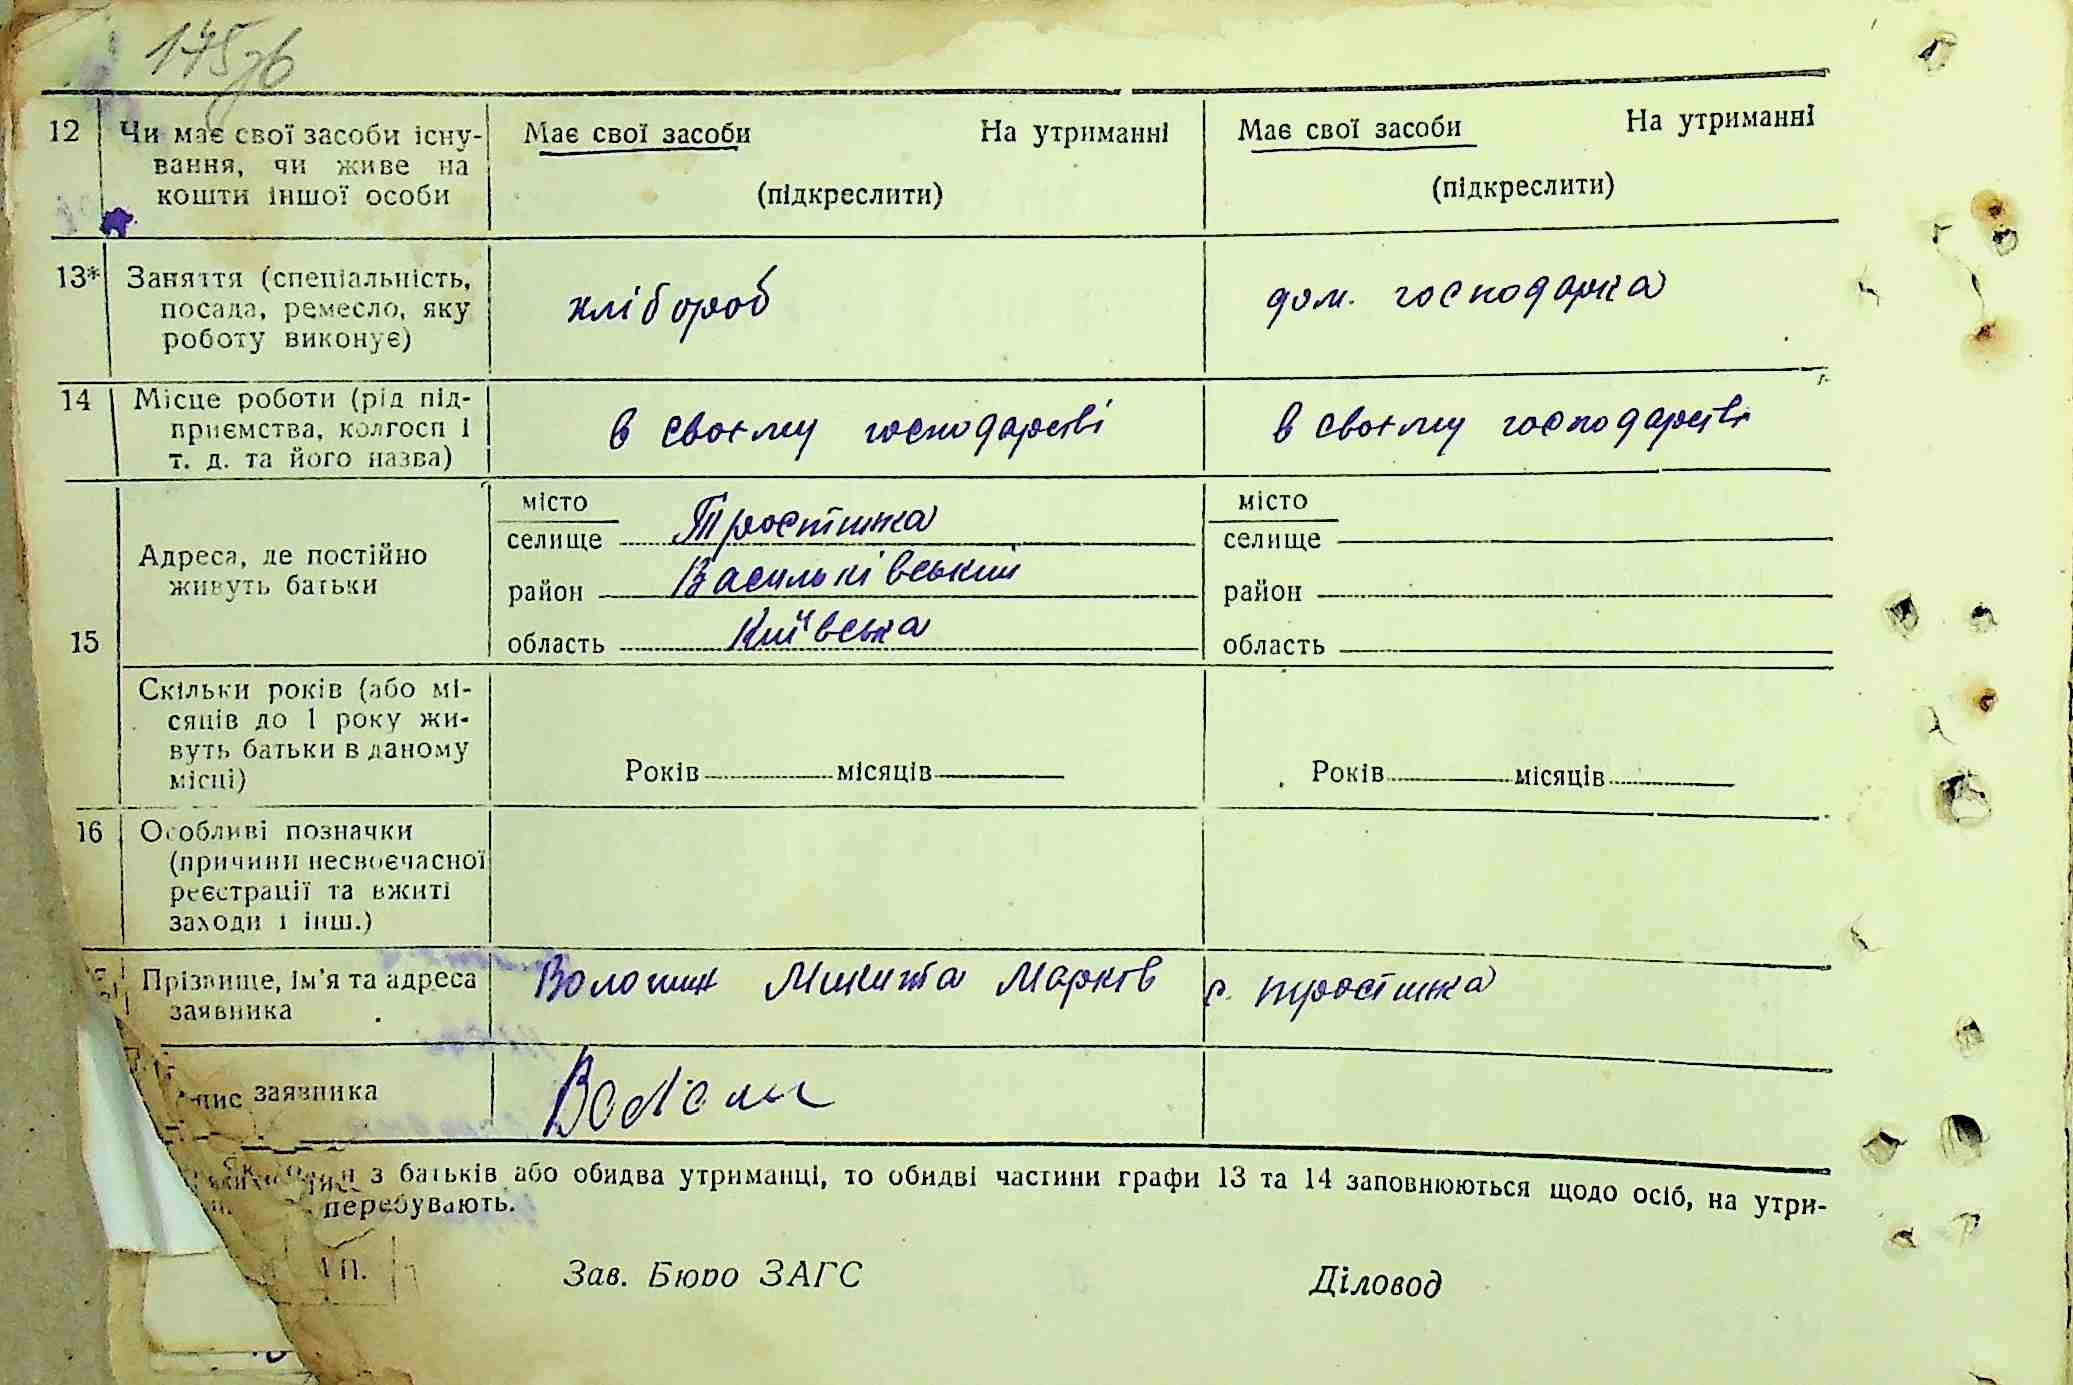 175зв
12 Чи має свої засоби існу- Має свої засоби На утриманні Має свої засоби На утриманні
вання, чи живе на
кошти іншої особи (підкреслити) (підкреслити)
13* Заняття (спеціальність, хлібороб дом. господарка
посада, ремесло, яку
роботу виконує)
14 Місце роботи (рід під- в своєму господарстві в своєму господарстві
приємства, колгосп і
т. д. та його назва)
місто місто
селище Тростинка селище
15 Адреса, де постійно
живуть батьки район Васильківський район
область Київська область
Скільки років (або мі-
сяців до 1 року жи-
вуть батьки в даному
місці) Років місяців Років місяців
16 Особливі позначки
(причини несвоєчасної
реєстрації та вжиті
заходи і інш.)
Прізвище, ім'я та адреса Волошин Микита Марків с. Тростинка
заявника
пис заявника Волош
з батьків або обидва утриманці, то обидві частини графи 13 та 14 заповнюються щодо осіб, на утри-
перебувають.
П. Зав. Бюро ЗАГС Діловод